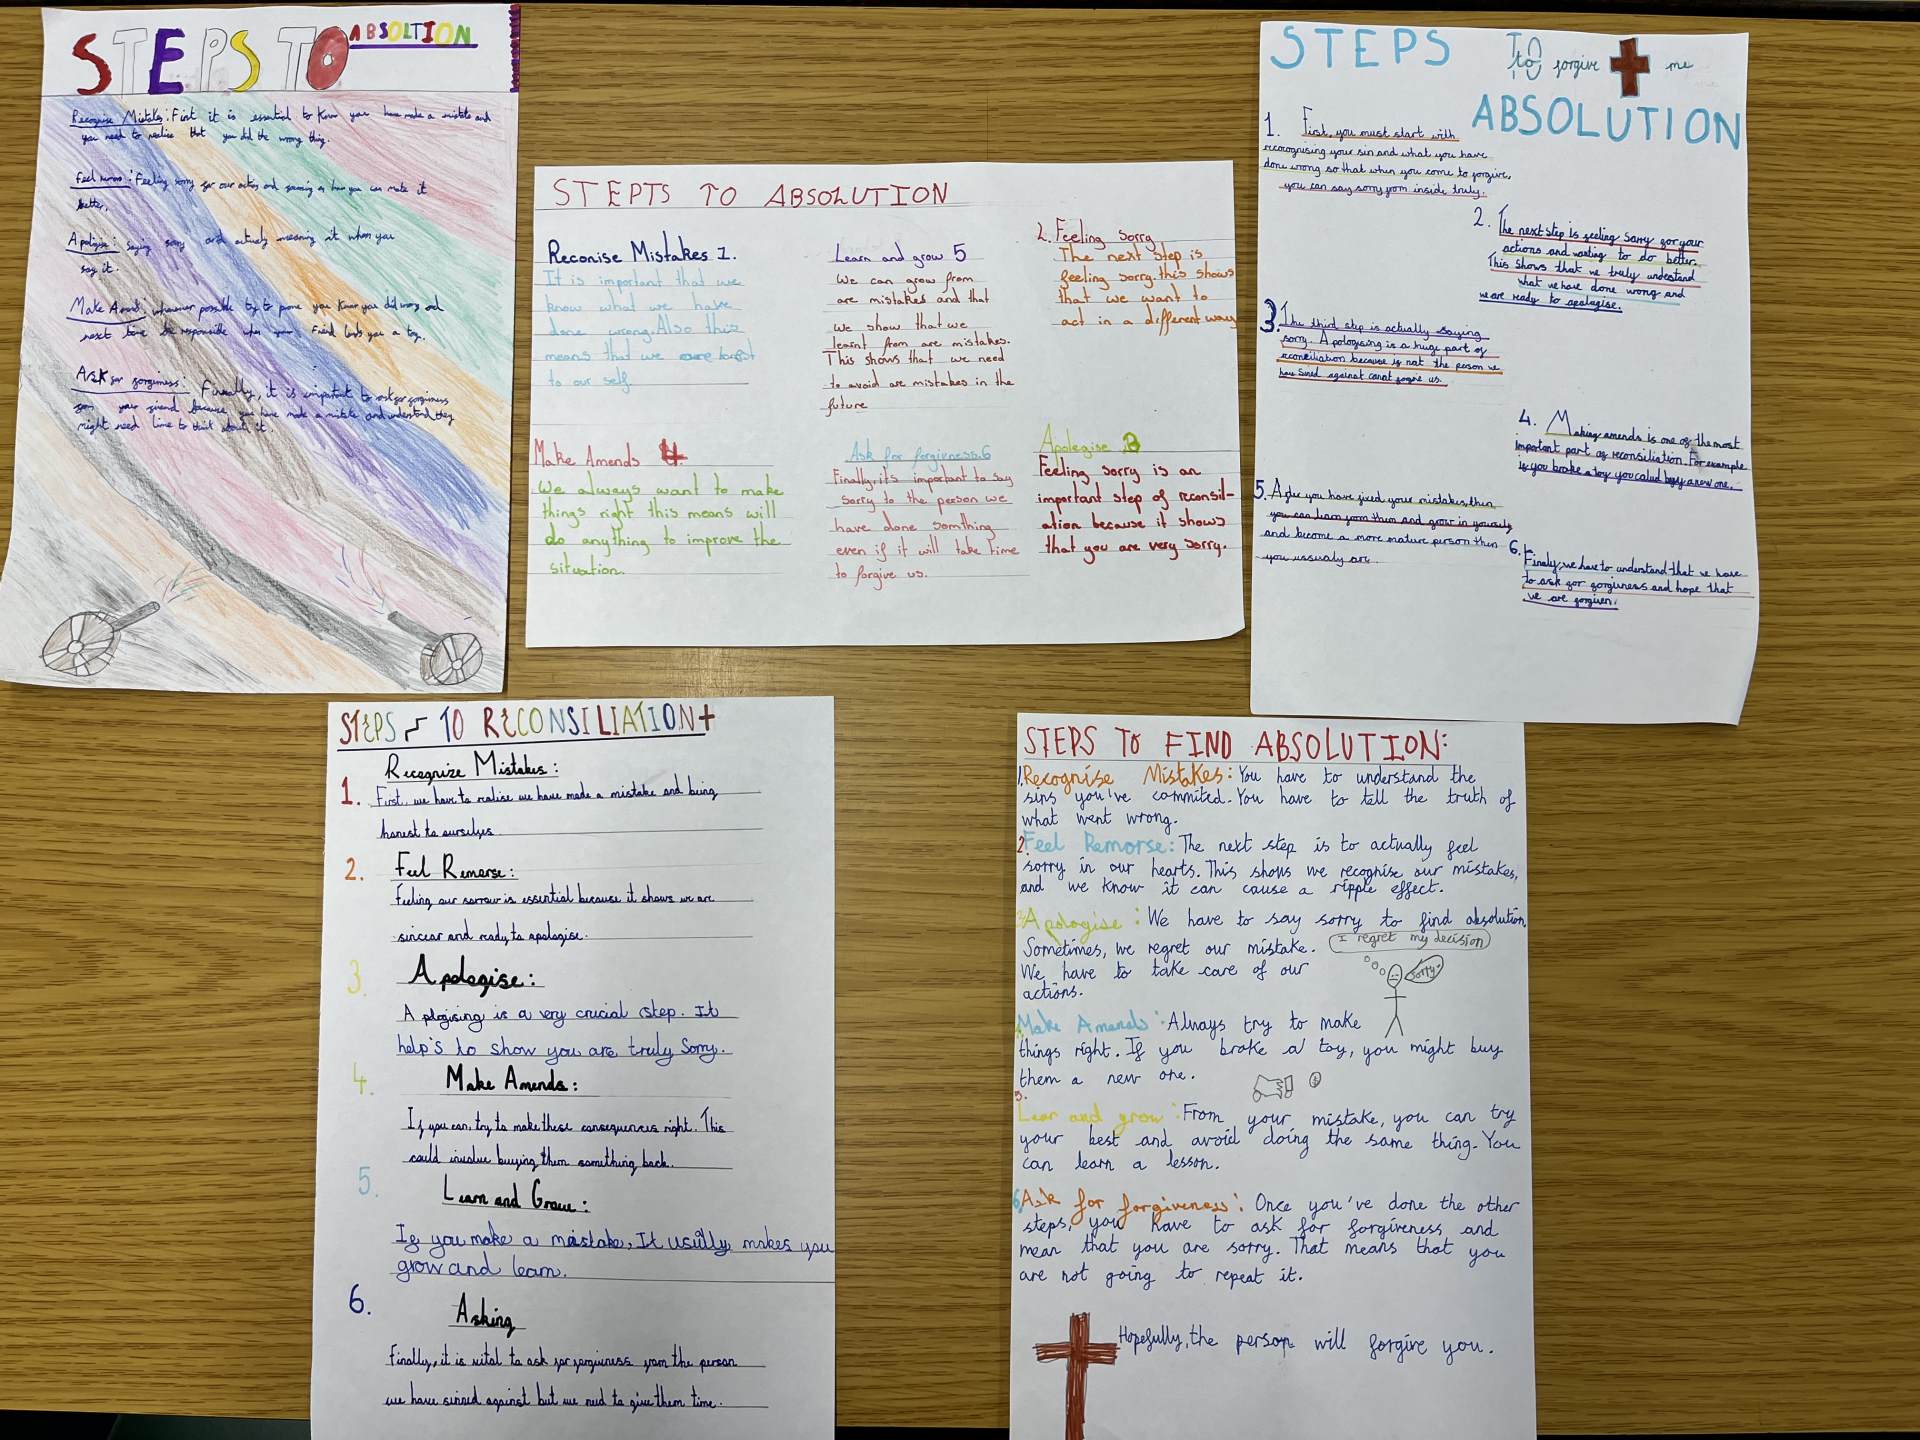 STEPS TO ABSOLTION
Recognise Mistakes: First it is essential to know you have made a mistake and
you need to realise that you did the wrong thing.
Feel remorse: Feeling sorry for our action and seeing as how you can make it
better.
Apoligise: saying sorry and actualy meaning it when you
say it.
Make Amend: whenever possible try to you know you did wrong and
next time be responsible when your friend lends you a toy.
Ask for forgivness: Finally, it is important to ask for forgivness
from your friend because you have made a mistake and understand they
might need time to think about it.
STEPTS TO ABSOLUTION
Reconise Mistakes 1.
It is important that we
know what we have
done wrong. Also this
means that we are
to our self.
Learn and grow 5
We can grow from
are mistakes and that
we show that we
learnt from are mistakes.
This shows that we need
to avoid are mistakes in the
future
2. Feeling sorry
The next step is
feeling sorry. this shows
that we want to
act in a different way
Make Amends 4
We always want to make
things right this means will
do anything to improve the
situation.
Ask for forgivness.6
Finally, it's important to say
sorry to the person we
have done somthing
even if it will take time
to forgive us.
Apologise 3
Feeling sorry is an
important step of reconsil-
ation because it shows
that you are very sorry.
STEPS TO ABSOLUTION
to forgive me
1. First, you must start with
recorognising your sin and what you have
done wrong so that when you come to forgive,
you can say sorry from inside truly.
2. The next step is feeling sorry for your
actions and wanting to do better.
This shows that we truly undestand
what we have done wrong and
we are ready to apologise.
3. The third step is actually saying
sorry. Apologising is a huge part of
reconciliation because if not the person we
have sined against cannt forgive us.
4. Making amends is one of the most
important part of reconsiliation. For example
if you broke a toy you calud buy a new one.
5. After you have fixed your mistakes, then
you can learn from them and grow in yourself
and become a more mature person then
you ussualy are.
6. Finaly, we have to understand that we have
to ask for forgivness and hope that
we are forgiven.
STEPS TO RECONSILIATION
Recognize Mistakes:
1. First, we have to realise we have made a mistake and being
honest to ourselves
2. Feel Remorse:
Feeling our sorrow is essential because it shows we are
sincear and ready to apologise.
3. Apologise:
Apologising is a very crucial step. It
help's to show you are truly sorry.
4. Make Amends:
If you can, try to make these consequences right. This
could involve buying them something back.
5. Learn and Grow:
If you make a mistake, It usully makes you
grow and learn.
6. Asking
Finally, it is vital to ask for forgivness from the person
we have sinned against but we need to give them time.
STEPS TO FIND ABSOLUTION:
1. Recognise Mistakes: You have to understand the
sins you've commited. You have to tell the truth of
what went wrong.
2. Feel Remorse: The next step is to actually feel
sorry in our hearts. This shows we recognise our mistakes,
and we know it can cause a ripple effect.
3. Apologise: We have to say sorry to find absolution
Sometimes, we regret our mistake.
We have to take care of our
actions.
I regret my decision
Sorry.
4. Make Amends: Always try to make
things right. If you broke a toy, you might buy
them a new one.
5.
Lear and grow: From your mistake, you can try
your best and avoid doing the same thing. You
can learn a lesson.
6. Ask for forgiveness: Once you've done the other
steps, you have to ask for forgiveness and
mean that you are sorry. That means that you
are not going to repeat it.
Hopefully, the person will forgive you.